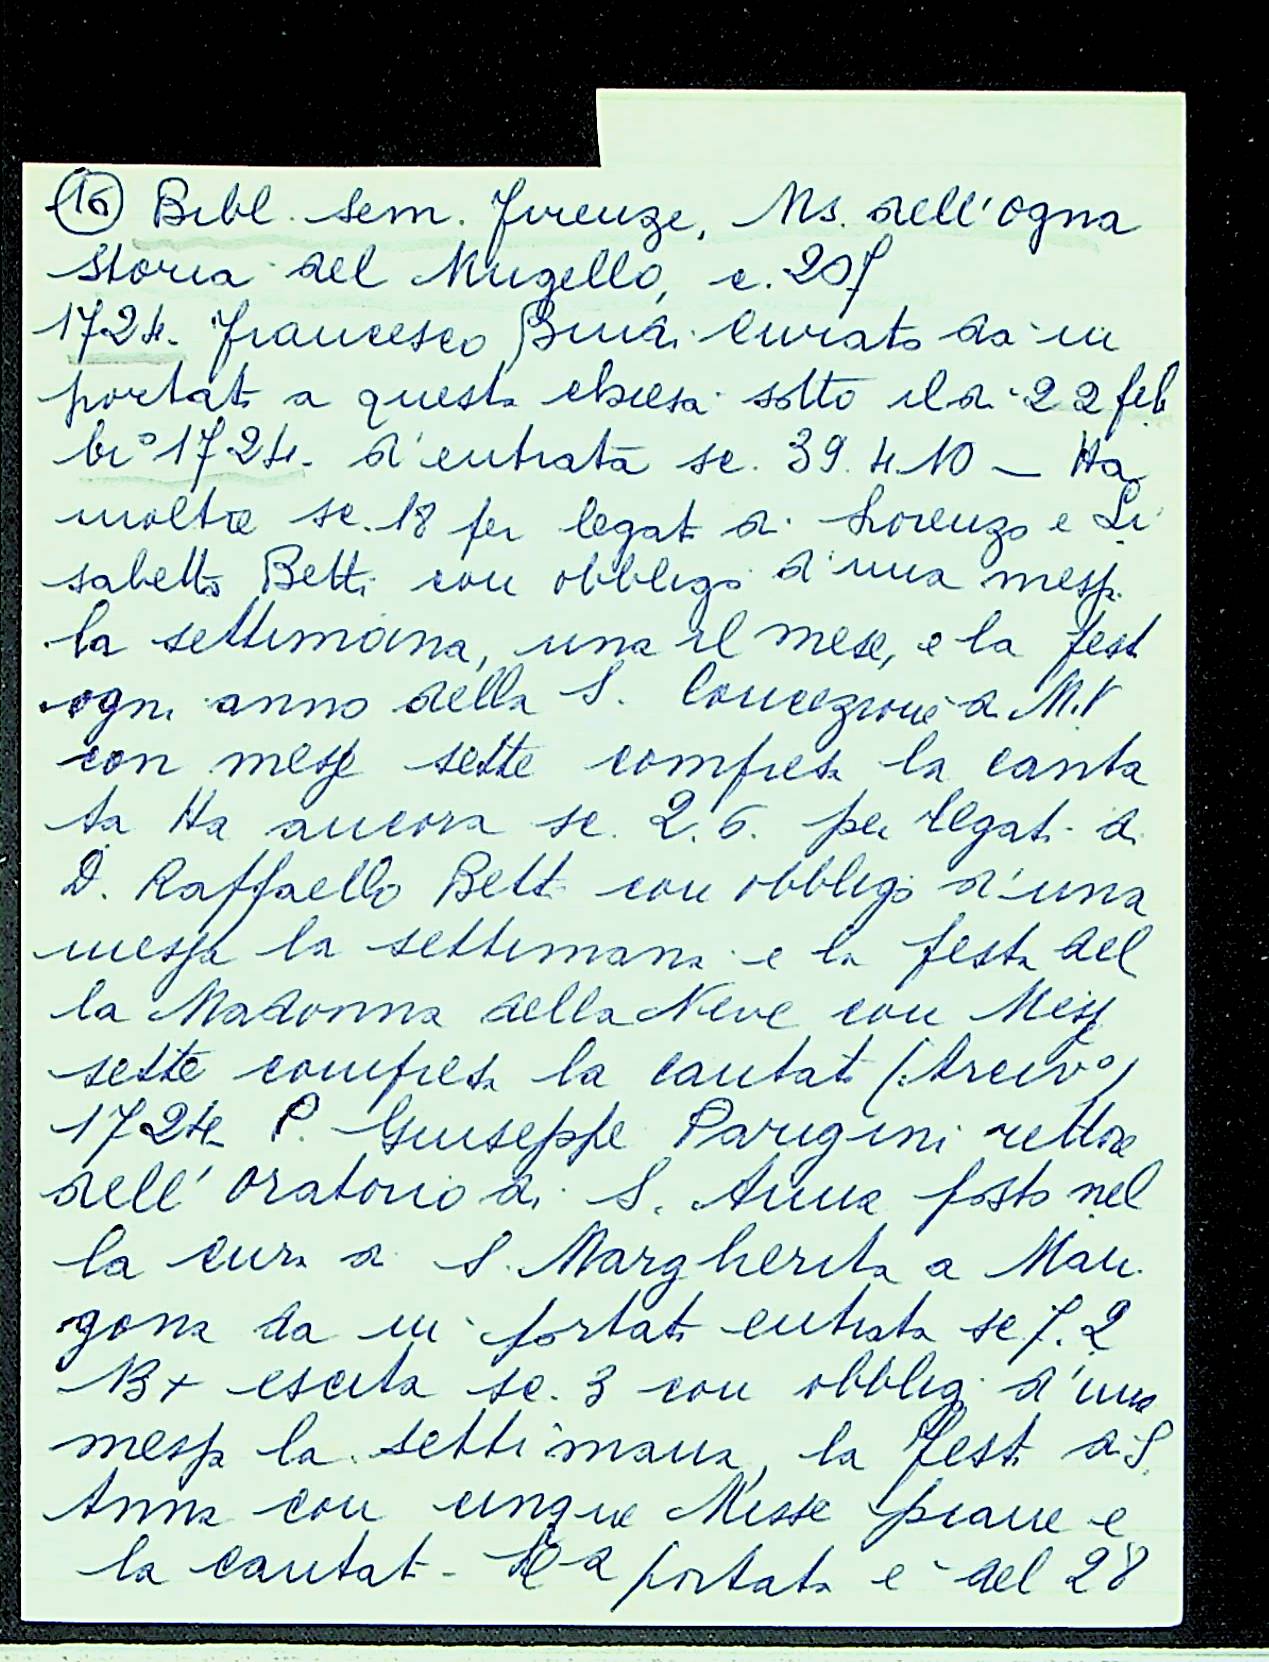 (16) Bibl. Sem. Firenze, Ms. dell'Ogna
Storia del Mugello, c. 207
1724. Francesco Curato da in
portata a questa chiesa sotto il dì 22 feb
br° 1724. d'entrata sc. 39. 4 10 — Ha
inoltre sc. 18 per legati di Lorenzo e Li
sabetta Betti con obbligo d'una messa
la settimana, una il mese, e la festa
ogni anno della S. Concezione di M.V
con messe sette compresa la canta
ta Ha ancora sc. 2. 6. per legati di
D. Raffaello Betti con obbligo d'una
messa la settimana e la festa del
la Madonna della Neve con Messe
sette compresa la cantata (Arciv°)
1724 P. Giuseppe Parigini rettore
dell'oratorio di S. Anna posto nel
la cura di S. Margherita a Man
gona da in portata entrata sc 7. 2
13 + escita sc. 3 con obbligo d'una
messa la settimana, la festa di S.
Anna con cinque Messe piane e
la cantata - portata è del 28